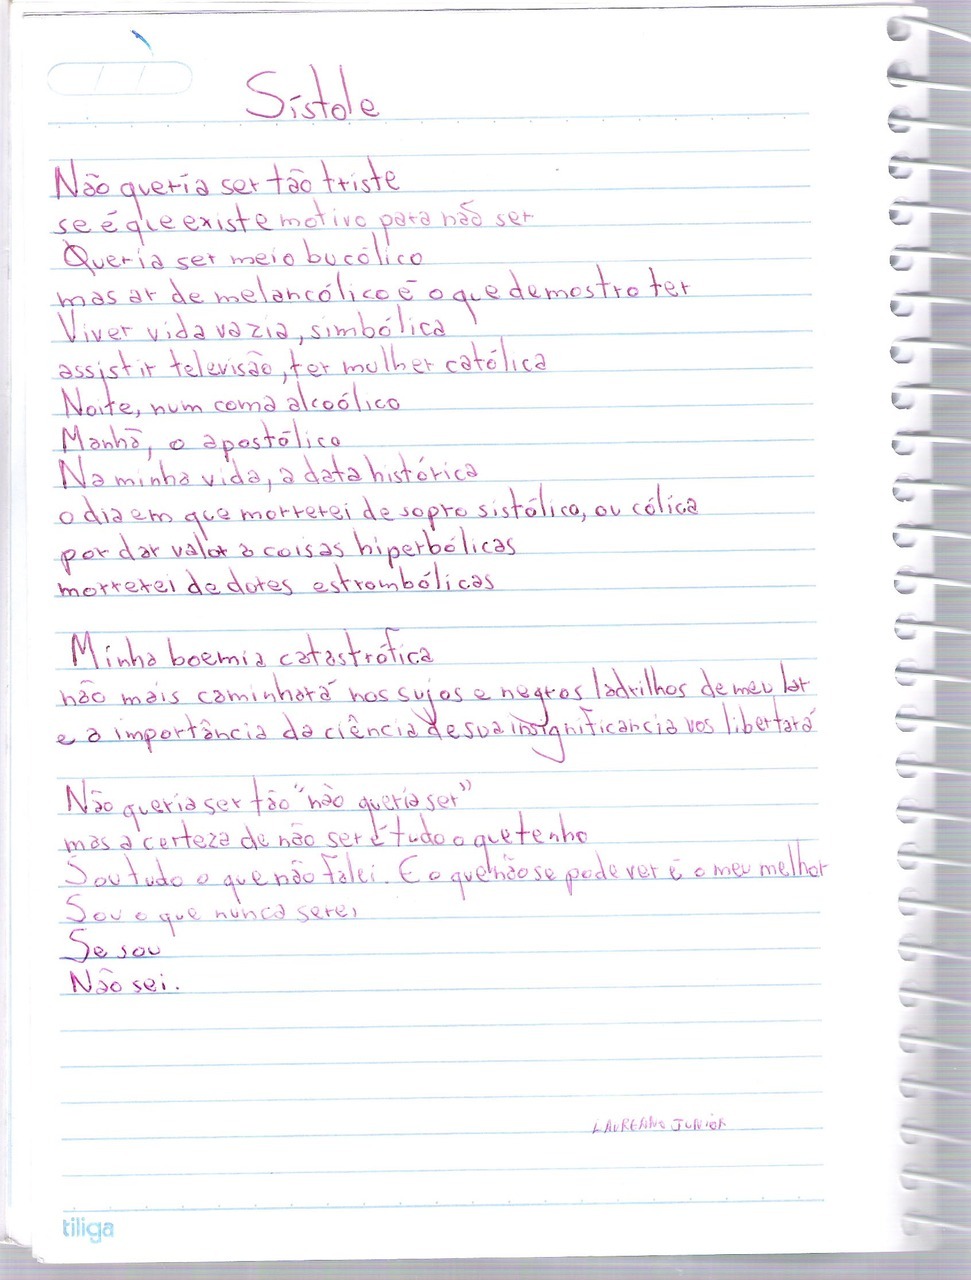 Sístole
Não queria ser tão triste
se é que existe motivo para não ser
Queria ser meio bucólico
mas ar de melancólico é o que demostro ter
Viver vida vazia, simbólica
assistir televisão, ter mulher católica
Noite, num coma alcoólico
Manhã, o apostólico
Na minha vida, a data histórica
o dia em que morrerei de sopro sistólico, ou cólica
por dar valor a coisas hiperbólicas
morrerei de dores estrombólicas
Minha boemia catastrófica
não mais caminhará nos sujos e negros ladrilhos de meu lar
e a importância da ciência de sua insignificancia vos libertará
Não queria ser tão "não queria ser"
mas a certeza de não ser é tudo o que tenho
Sou tudo o que não falei. E o que não se pode ver é o meu melhor
Sou o que nunca serei
Se sou
Não sei.
LAUREANO JUNIOR
tiliga